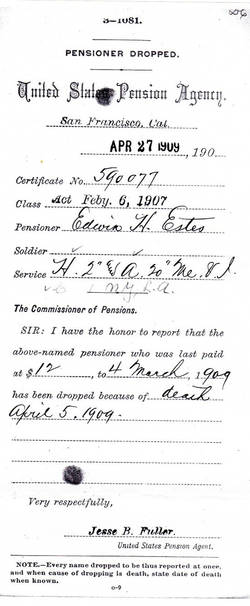 3—1081.
PENSIONER DROPPED.
United States Pension Agency.
San Francisco, Cal.
APR 27 1909, 190
Certificate No. 590077
Class Act Feby. 6, 1907
Pensioner Edwin H. Estes
Soldier
Service H. 2" & A. 20" Me. V. I.
The Commissioner of Pensions.
SIR: I have the honor to report that the
above-named pensioner who was last paid
at $12, to 4 March, 1909
has been dropped because of death
April 5, 1909.
Very respectfully,
Jesse B. Fuller.
United States Pension Agent.
NOTE.—Every name dropped to be thus reported at once,
and when cause of dropping is death, state date of death
when known.